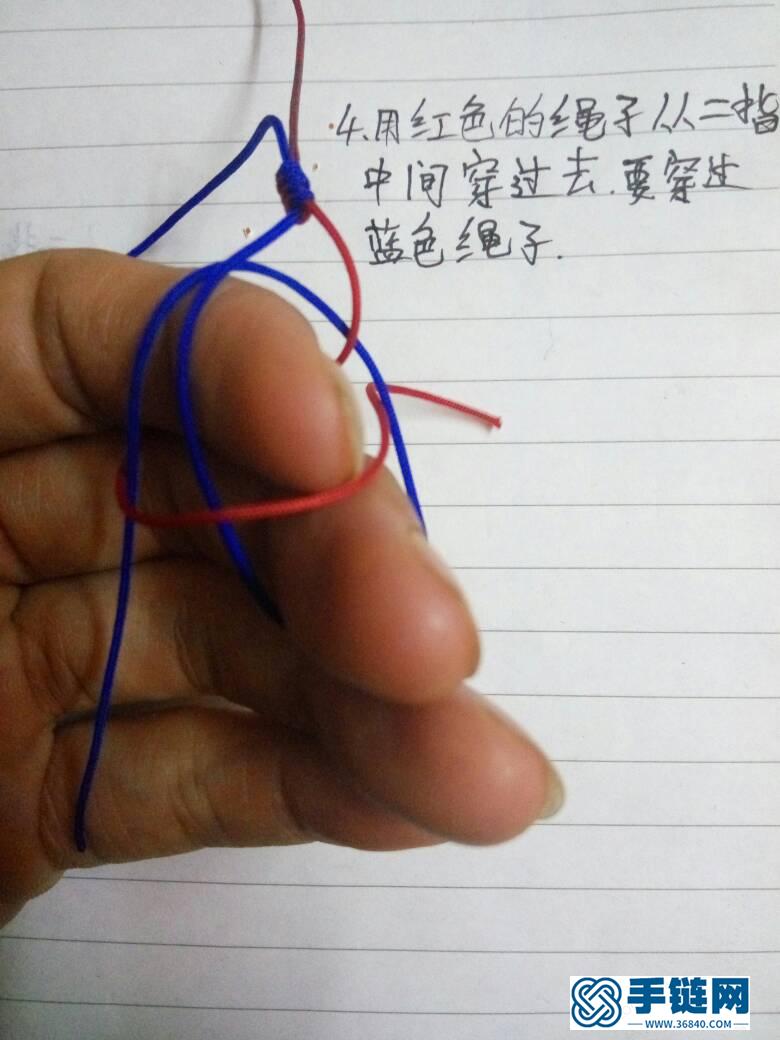 4.用红色的绳子从二指
中间穿过去.要穿过
蓝色绳子.
手链网
WWW.36840.COM